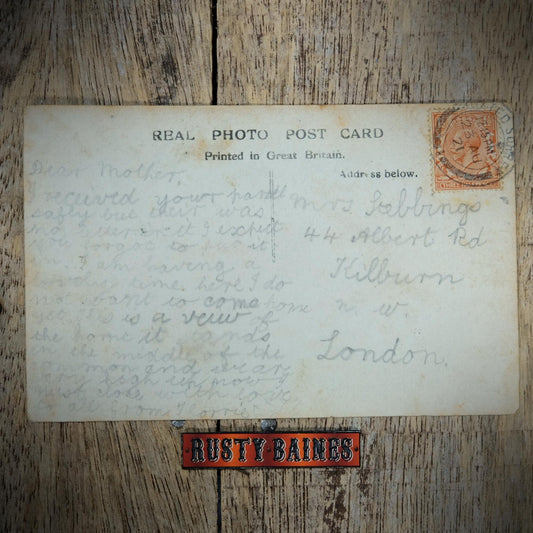 REAL PHOTO POST CARD
Printed in Great Britain.
Address below.
Dear Mother,
I received your
safly but their was
no in it I expect
you forgot to put it
in I am having a
lovely time here I do
not want to come home
yet this is a veiw of
the home it stands
in the middle of the
common and we are
very high up now I
must close with love
to all from
Mrs Stebbings
44 Albert Rd
Kilburn
n. w.
London.
RUSTY·BAINES